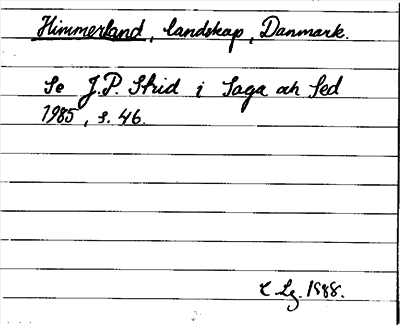 Himmerland, landskap, Danmark.
Se J.P. Strid i Saga och Sed
1985, s. 46.
C Lg. 1988.